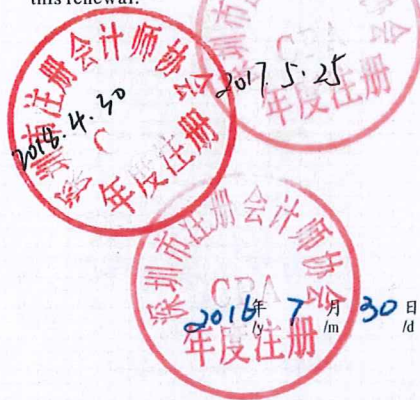 this renewal.
深圳市注册会计师协会
CPA
年度注册
2017.5.25
深圳市注册会计师协会
C
年度注册
2018.4.30
深圳市注册会计师协会
CPA
年度注册
2016年 7月 30日
/y /m /d